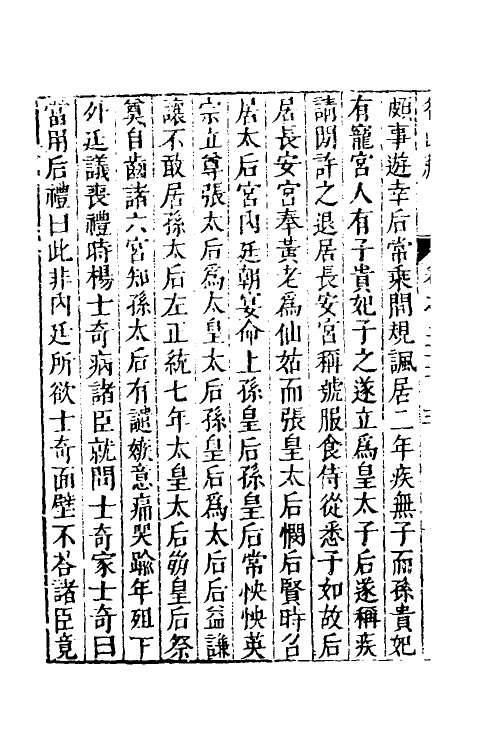 頗事遊幸后常乘間規諷居二年疾無子而孫貴妃
有寵宮人有子貴妃子之遂立爲皇太子后遂稱疾
請閒許之退居長安宮稱號服食侍從悉于如故后
居長安宮奉黃老爲仙姑而張皇太后憫后賢時召
居太后宮內廷朝宴命上孫皇后孫皇后常怏怏英
宗立尊張太后爲太皇太后孫皇后爲太后后益謙
讓不敢居孫太后左正統七年太皇太后崩皇后祭
奠自齒諸六宮知孫太后有譴嫉意痛哭踰年殂下
外廷議喪禮時楊士奇病諸臣就問士奇家士奇曰
當用后禮曰此非內廷所欲士奇面壁不荅諸臣竟